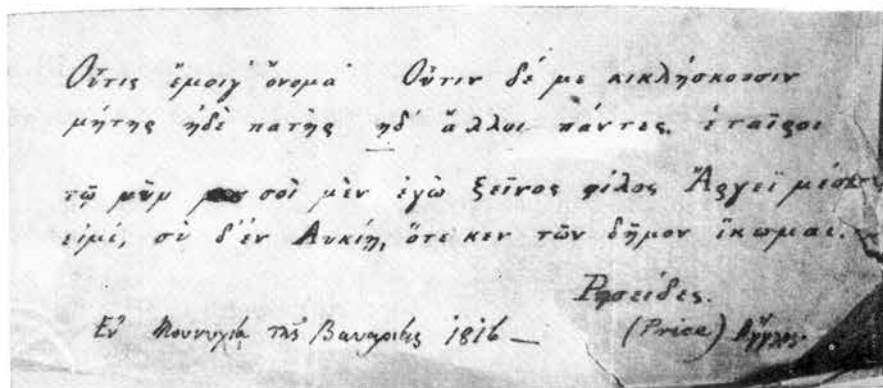 Οὖτις ἔμοιγ' ὄνομα· Οὖτιν δέ με κικλήσκουσιν
μήτης ἠδὲ πατὴς ἠδ' ἄλλοι πάντες. ἑταῖροι
τῷ νῦν σοὶ μὲν ἐγὼ ξεῖνος φίλος Ἄργεϊ μέσσῳ
εἰμὶ, σὺ δ' ἐν Λυκίῃ, ὅτε κεν τῶν δῆμον ἵκωμαι.
Ρησείδες.
Ἐν Μουνυχίᾳ τῆς Βαυαρίας 1816 — (Price) Ἄγγλος.